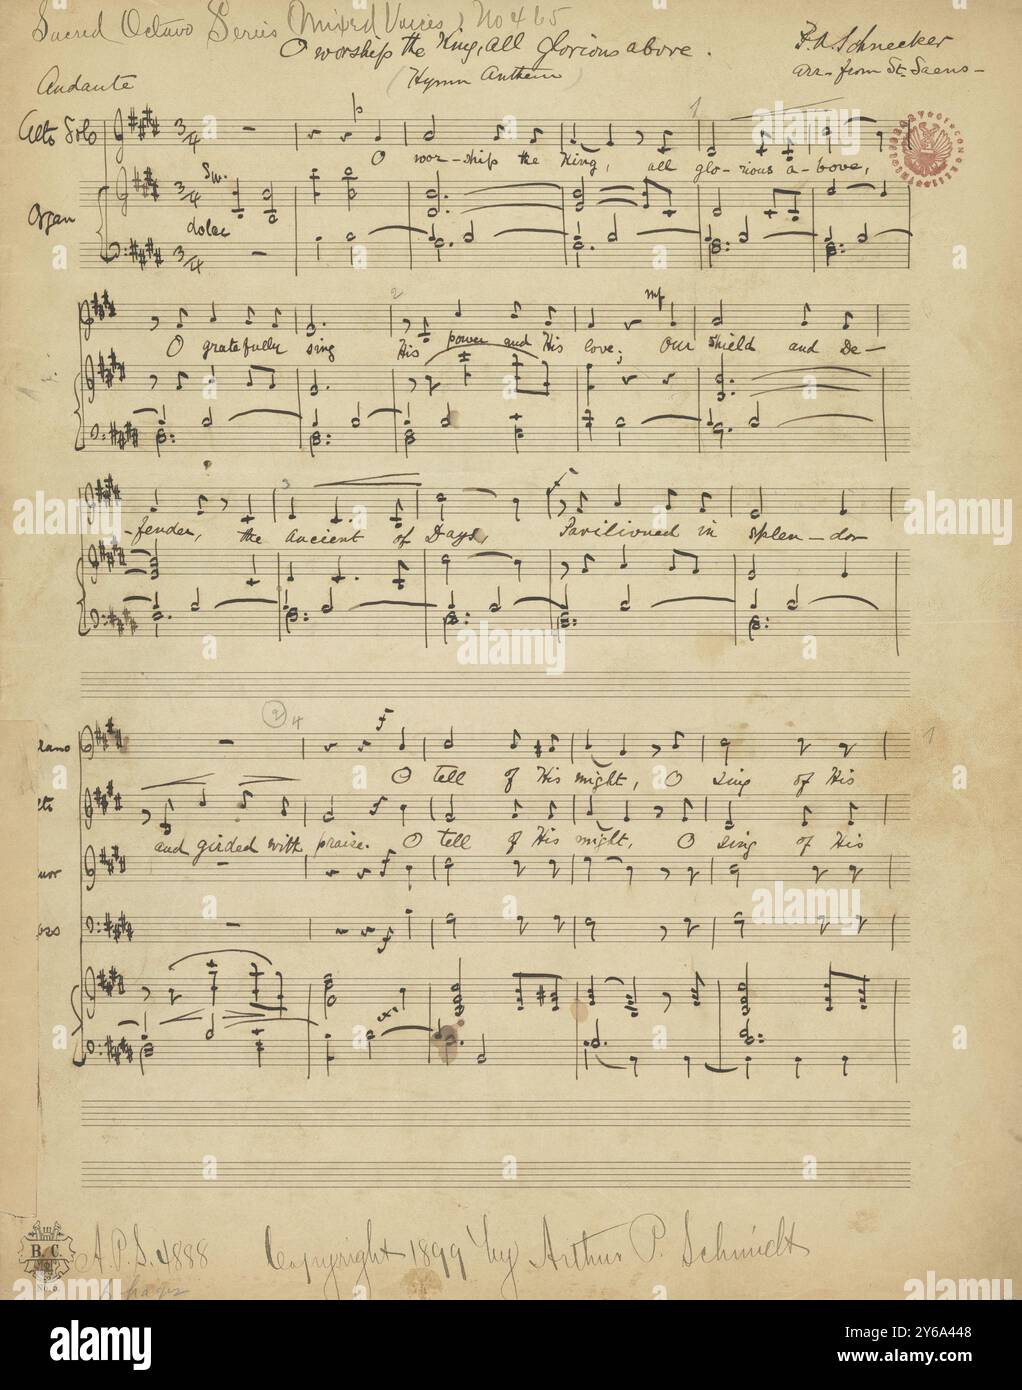 Sacred Octavo Series (Mixed Voices) No 465
O worship the King, all glorious above.
P. A. Schnecker
(Hymn Anthem)
arr. from St. Saens—
Andante
Alto Solo
O wor-ship the King, all glo-rious a-bove,
Sw.
Organ
dolce
mp
O gratefully sing His power and His love; Our Shield and De—
-fender, the Ancient of Days, Pavilioned in splen-dor
4
f
O tell of His might, O sing of His
and girded with praise. O tell of His might, O sing of His
f
f
B. C.
A.P.S. 4888 Copyright 1899 by Arthur P. Schmidt
alamy
Image ID: 2Y6A448
www.alamy.com